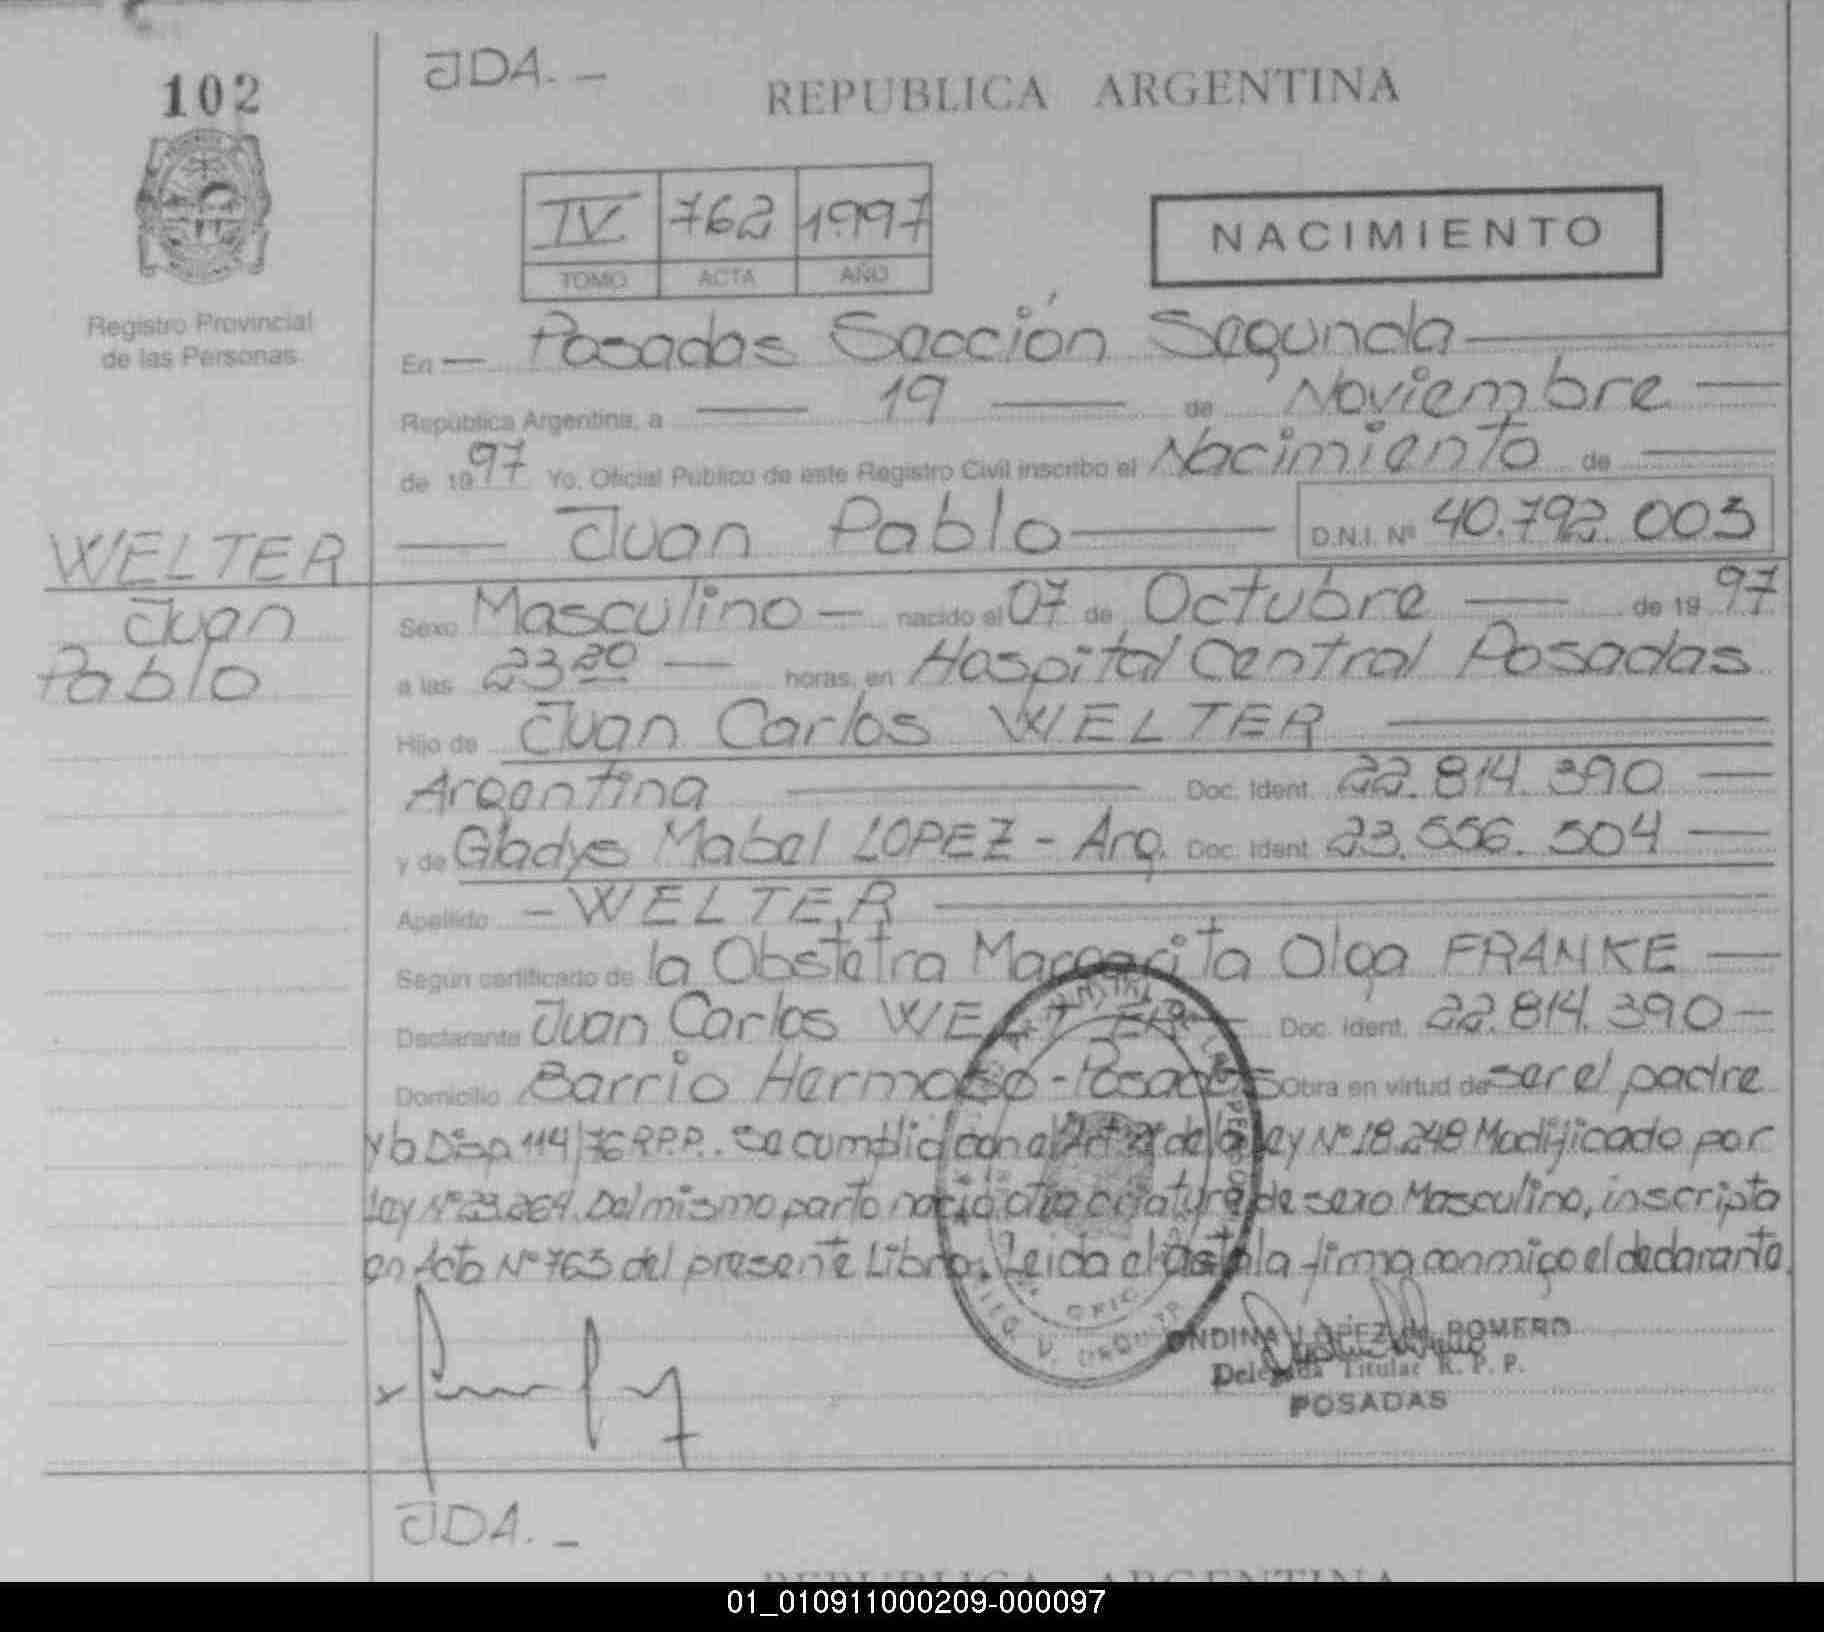 102
JDA. -
REPUBLICA ARGENTINA
IV 762 1997
TOMO ACTA AÑO
NACIMIENTO
Registro Provincial
de las Personas
En — Posadas Sección Segunda
República Argentina, a — 19 — de Noviembre —
de 1997 Yo, Oficial Público de este Registro Civil inscribo el Nacimiento de —
— Juan Pablo — D.N.I. Nº 40.792.003
WELTER
Juan
Pablo
Sexo Masculino — nacido el 07 de Octubre — de 1997
a las 23 20 — horas, en Hospital Central Posadas
Hijo de Juan Carlos WELTER —
Argentina — Doc. Ident. 22.814.390 —
y de Gladys Mabel LOPEZ - Arg. Doc. Ident 23.556.504 —
Apellido - WELTER —
Según certificado de la Obstetra Margarita Olga FRANKE —
Declarante Juan Carlos WELTER — Doc. Ident. 22.814.390 -
Domicilio Barrio Hermoso - Posadas Obra en virtud de ser el padre
y la Disp. 114/76 R.P.P.. Se cumplió con el Art. de la Ley Nº 18.248 Modificado por
Ley Nº 23.264. Del mismo parto nació otra criatura de sexo Masculino, inscripta
en Acta Nº 763 del presente Libro. Leida el acta la firma conmigo el declarante.
ONDINA LOPEZ ROMERO
Delegada Titular R. P. P.
POSADAS
JDA. -
REPUBLICA ARGENTINA
01_010911000209-000097